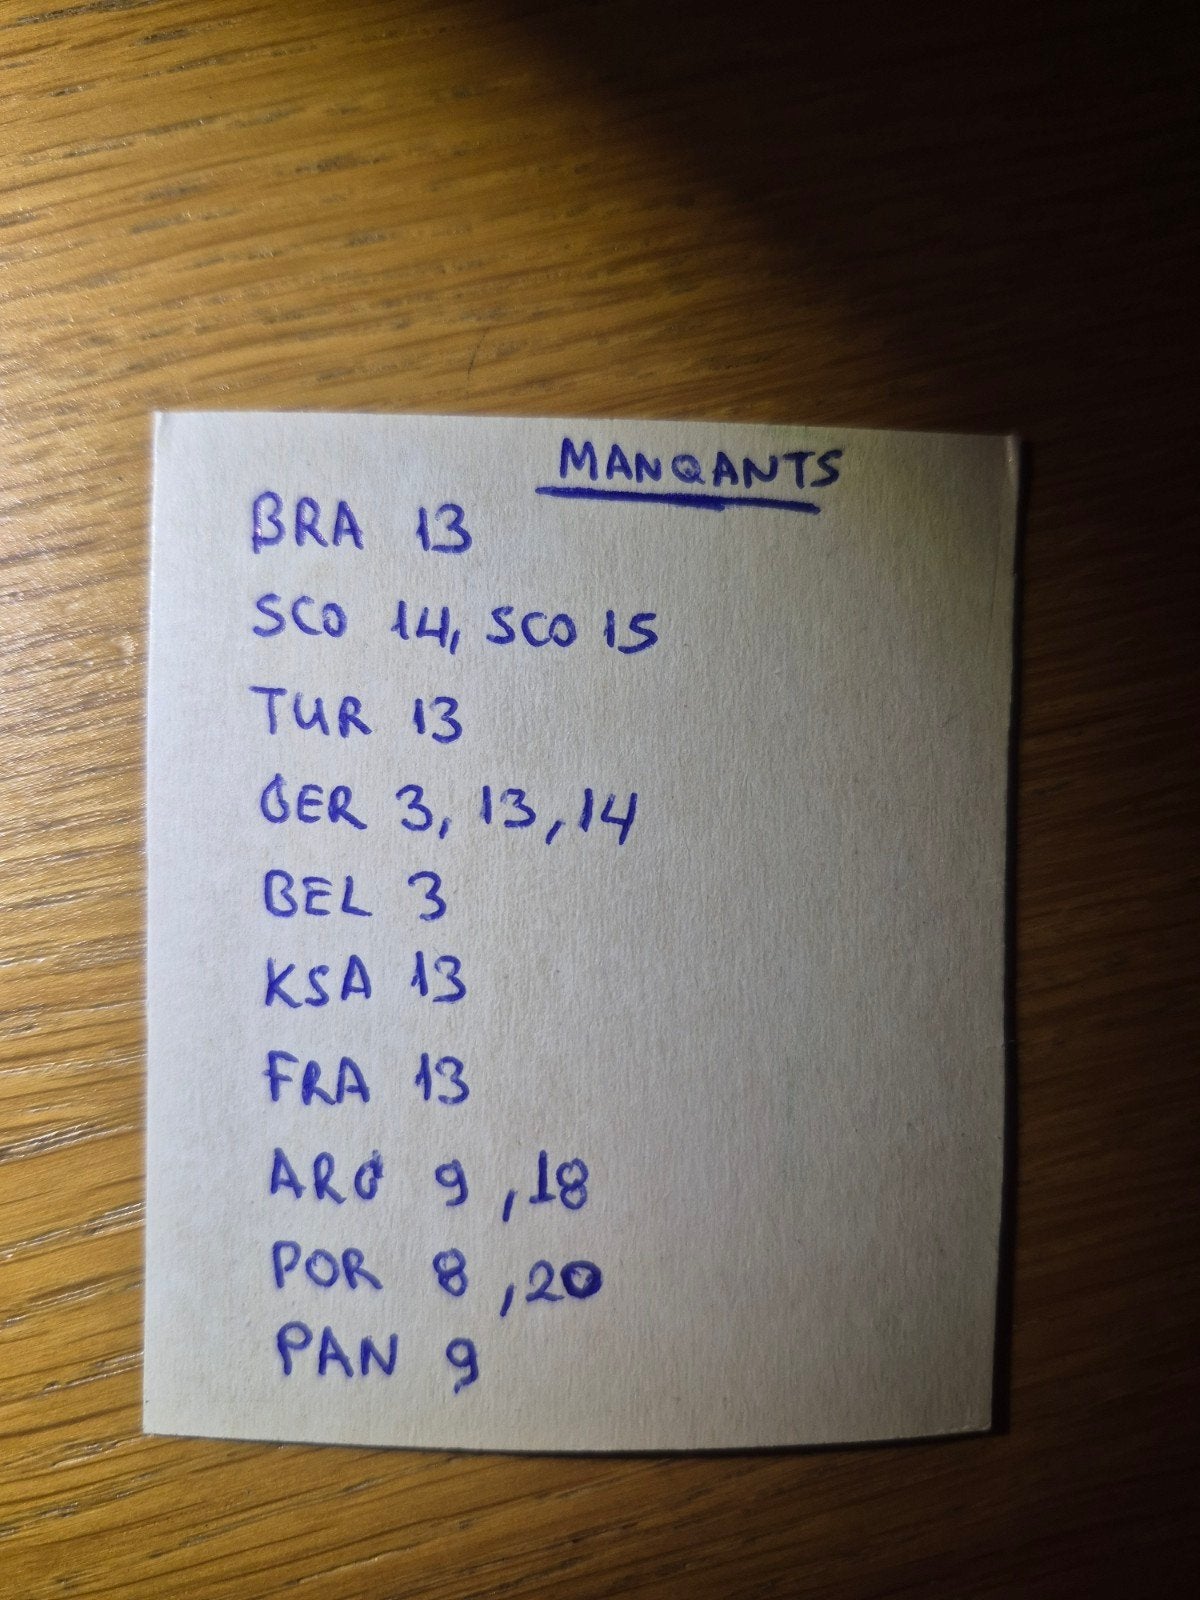 MANQANTS
BRA 13
SCO 14, SCO 15
TUR 13
GER 3, 13, 14
BEL 3
KSA 13
FRA 13
ARG 9, 18
POR 8, 20
PAN 9